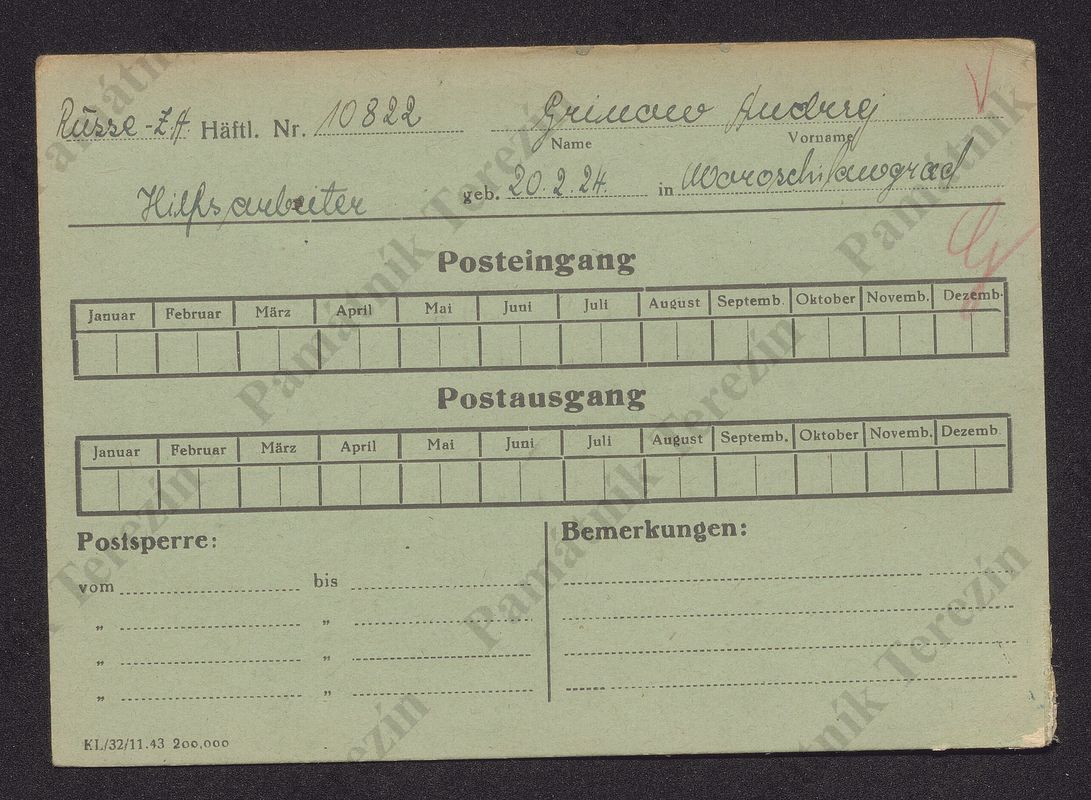 Russe - ZA. Häftl. Nr. 10822 Grinow Andrej
Name Vorname
Hilfsarbeiter geb. 20.2.24. in Woroschilowgrad
Posteingang
Januar Februar März April Mai Juni Juli August Septemb. Oktober Novemb. Dezemb.
Postausgang
Januar Februar März April Mai Juni Juli August Septemb. Oktober Novemb. Dezemb.
Postsperre: Bemerkungen:
vom bis
" "
" "
" "
KL/32/11.43 200,000
Památník Terezín
Památník Terezín
Památník Terezín
Památník Terezín